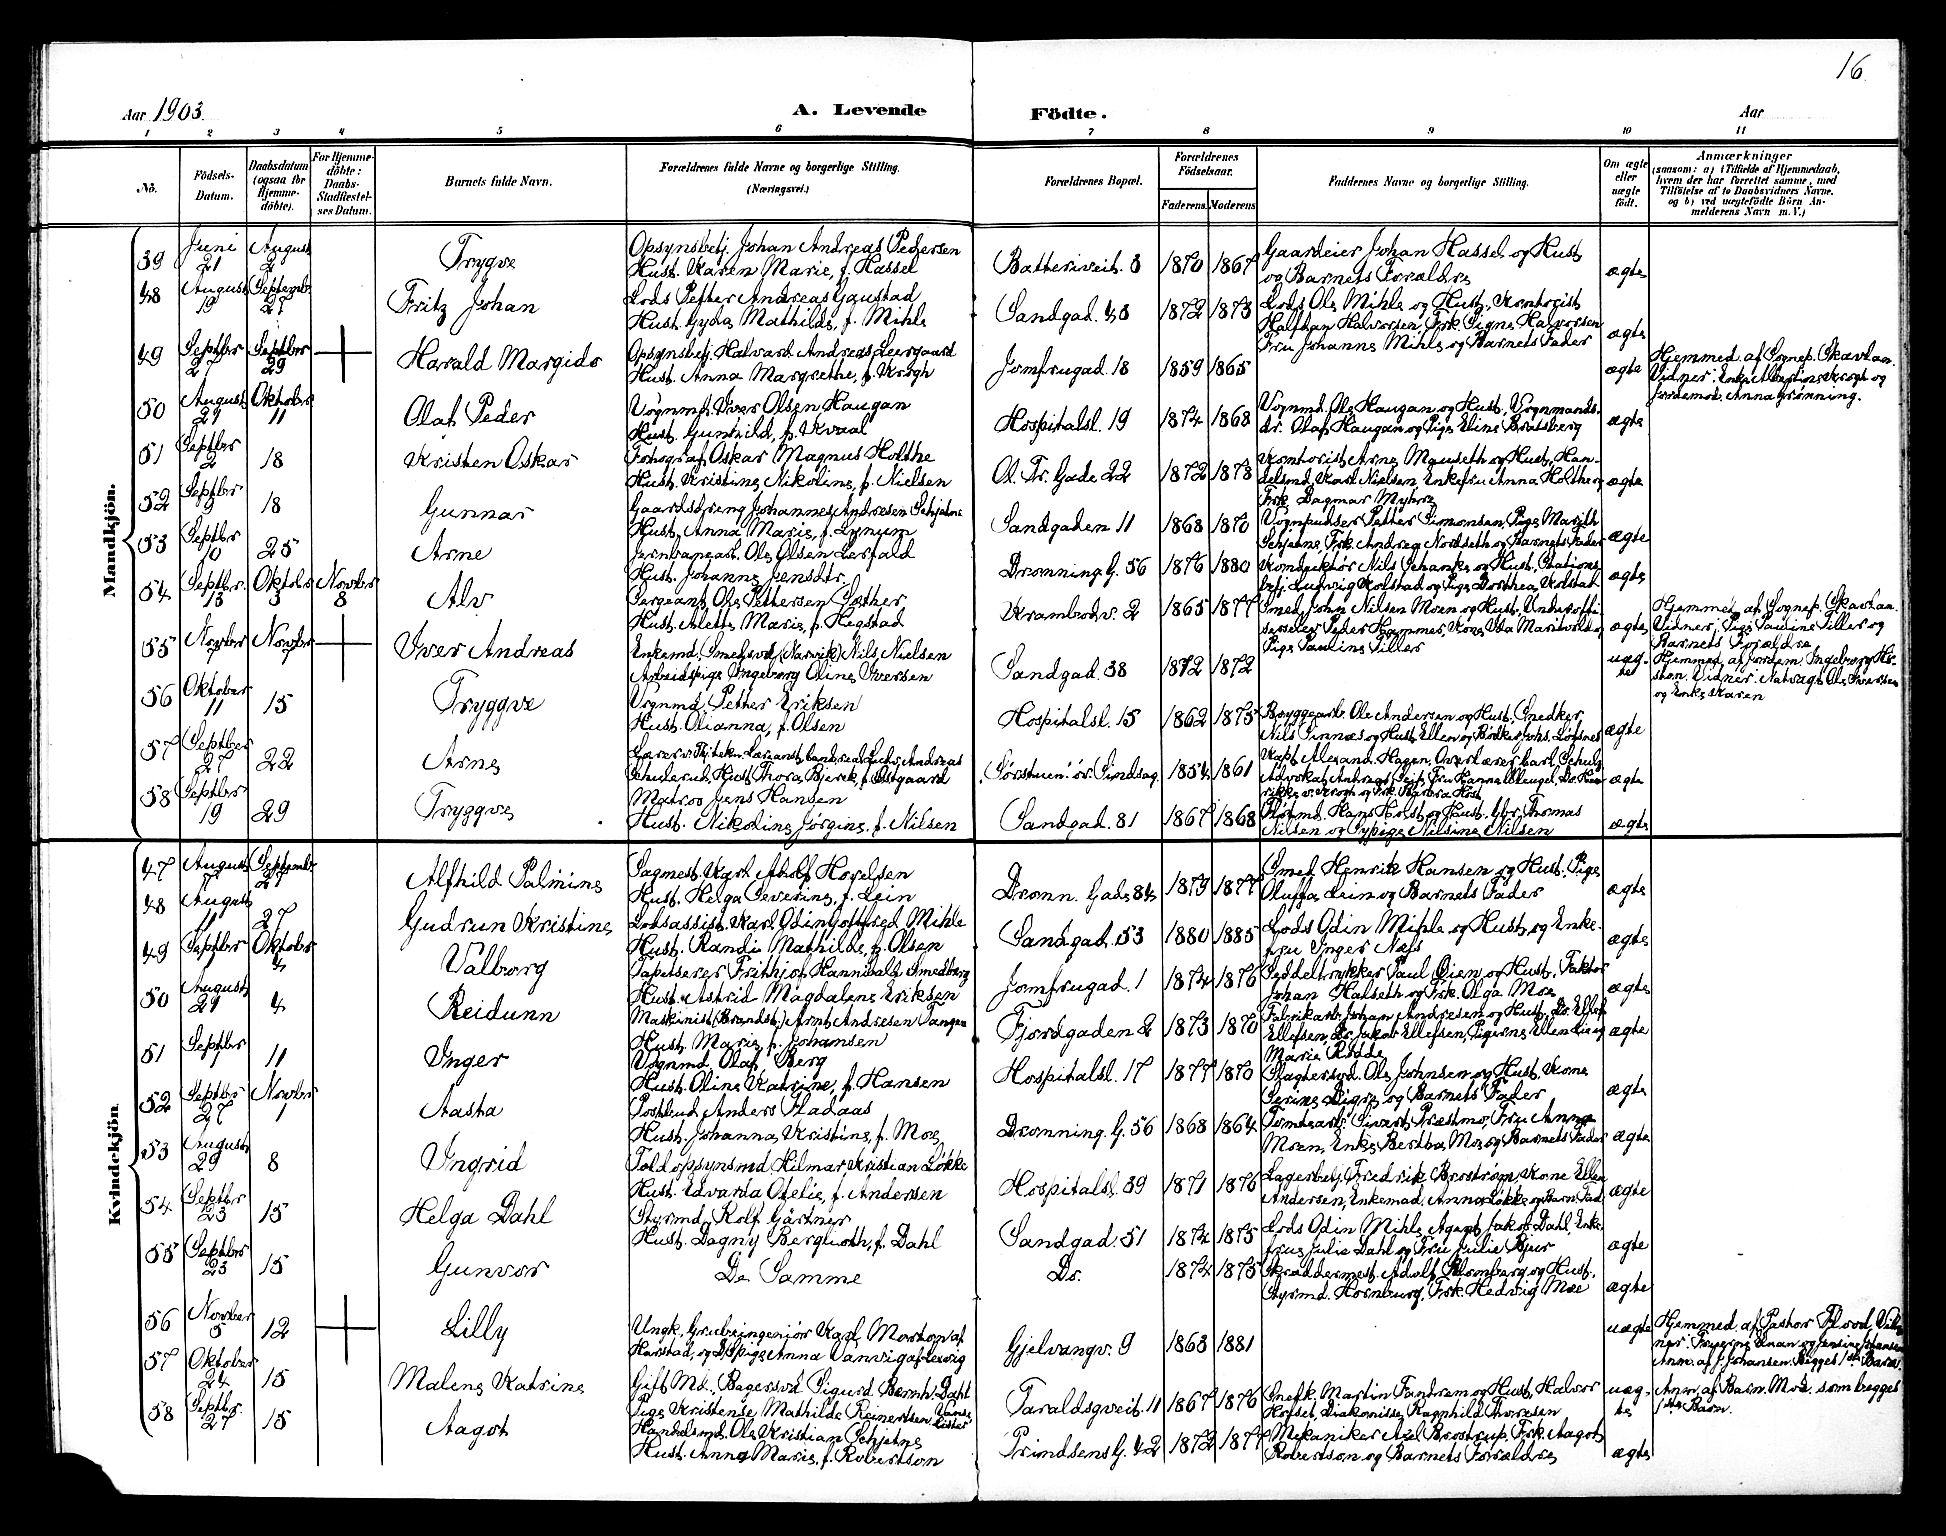 16
Aar 1903.
A. Levende Födte.
Aar
1 2 3 4 5 6 7 8 9 10 11
No.
Födsels-Datum.
Daabsdatum (ogsaa for Hjemme-döbte).
For Hjemme-döbte: Daabs-Stadfæstel-ses Datum.
Barnets fulde Navn.
Forældrenes fulde Navne og borgerlige Stilling. (Næringsvei.)
Forældrenes Bopæl.
Forældrenes Födselsaar.
Faderens. Moderens
Faddernes Navne og borgerlige Stilling.
Om ægte eller uægte födt.
Anmærkninger
(saasom: a) i Tilfælde af Hjemmedaab, hvem der har forrettet samme, med Tilföielse af to Daabsvidners Navne, og b) ved uægtefödte Börn An-melderens Navn m. V.)
Mandkjön.
39 Juni 21 August 2 Trygve
Opsynsbetj. Johan Andreas Pedersen
Hust. Karen Marie, f. Hassel
Batteriveit. 3 1870 1867
Gaardeier Johan Hassel og Hust
og Barnets Forældre
ægte
48 August 19 Septemb. 27 Fritz Johan
Lods Petter Andreas Gaustad
Hust. Gyda Mathilde, f. Mihle
Sandgad. 43 1872 1873
Lods Ole Mihle og Hust, Kontorist
Halfdan Halvorsen, Frk. Signe Halvorsen
Fru Johanne Mihle og Barnets Fader
ægte
49 Septbr 27 Septbr 29 Harald Margido
Opsynsbetj. Halvard Andreas Leergaard
Hust. Anna Margrethe, f. Krogh
Jomfrugad. 18 1859 1865
ægte
Hjemmed. af Sognep. Skavlan.
Vidner: Enke Albertine Krogh og
Jordemod. Anna Grønning.
50 August 29 Oktober 11 Olaf Peder
Vognmf. Iver Olsen Haugan
Hust. Gunhild, f. Kvaal
Hospitalsl. 19 1874 1868
Vognmd. Ole Haugan og Hust, Vognmands-
dr. Olaf Haugan og Pige Eline Bratsberg
ægte
51 Septbr 2 18 Kristen Oskar
Fotograf Oskar Magnus Holthe
Hust. Kristine Nikoline, f. Nielsen
Ol. Tr. Gade 22 1872 1878
Kontorist Arne Mauseth og Hust, Han-
delsmd. Karl Nielsen Enkefru Anna Holthe og
Frk. Dagmar Myhre
ægte
52 Septbr 9 18 Gunnar
Gaardsdreng Johannes Andresen Schjelne
Hust. Anna Marie, f. Lynum
Sandgaden 11 1868 1870
Vognpudser Petter Simonsen, Pige Marith
Schjelne, Frk. Andrea Nordseth og Barnets Fader
ægte
53 Septbr 10 25 Arne
Jernbanearb. Ole Olsen Lerfald
Hust. Johanne Jensdtr.
Dronning. G. 56 1876 1880
Konduktør Nils Schanke og Hust, Stations-
betj. Ludvig Kolstad og Pige Dorthea Kolstad
ægte
54 Septbr. 13 Oktobr 3 Novbr 8 Alv
Sergeant, Ole Pettersen Sæther
Hust. Alette Marie, f. Hegstad
Krambodv. 2 1865 1877
Smed John Nilsen Moen og Hust, Underoffi-
ægte
Pige Pauline Tiller
55 Novbr 7 Novbr 7 Iver Andreas
Enkemd. Smedsvd. (Narvik) Nils Nielsen
Arbeidspige Ingeborg Oline Iversen
Sandgad. 38 1872 1872
uæg-
te
Hjemmed. af Sognep. Skavlan.
Vidner: Pige Pauline Tiller og
Barnets Forældre
56 Oktober 11 15 Tryggve
Vognmd. Petter Eriksen
Hust. Olianna, f. Olsen
Hospitalsl. 15 1862 1875
Bryggearb. Ole Andersen og Hust, Snedker
ægte
57 Septbr 27 22 Arne
Sørstuen øv. Singsag. 1854 1861
ægte
58 Septbr 19 29 Tryggve
Matros Jens Hansen
Hust. Nikoline Jørgine, f. Nilsen
Sandgad. 81 1867 1868
Nilsen og Sypige Nilsine Nilsen
ægte
Kvindekjön
47 August 7 Septembr. 27 Alfhild Palmine
Sagmest. Karl Atholf Horelsen
Hust. Helga Severine, f. Lein
Dronn. Gade 84 1879 1877
Smed Henrik Hansen og Hust. Pige
Oluffa Lein og Barnets Fader
ægte
48 August 11 27 Gudrun Kristine
Lodsassist. Karl Odin Gottfred Mihle
Hust. Randi Mathilde, f. Olsen
Sandgad. 53 1880 1885
Lods Odin Mihle og Hust, og Enke-
fru Inger Næs
ægte
49 Septbr Oktober 4 Valborg
Tapetserer Frithjof Hannibal Smedberg
Hust. Astrid Magdalene Eriksen
Jomfrugad. 1 1874 1876
Seddeltrykker Paul Øien og Hust, Faktor
Johan Halseth og Frk. Olga Moe
ægte
50 August 29 4 Reidunn
Maskinist (Brandst.) Arnt Andresen Tangen
Hust. Marie, f. Johansen
Fjordgaden 2 1873 1870
Fabrikarb. Johan Andresen og Hust,
Marie Rødde
ægte
51 Septbr 7 11 Inger
Vognmd. Olaf Berg
Hust. Oline Katrine, f. Hansen
Hospitalsl. 17 1877 1870
Slagtersvd. Ole Johnsen og Hust. Kone
Serine Digre og Barnets Fader
ægte
52 Septbr 27 Novbr 1 Aasta
Postbud Anders Stadaas
Hust. Johanna Kristine, f. Moe
Dronning. G. 56 1868 1864
Moen, Enke Bertha Moe og Barnets Fader
ægte
53 August 29 8 Ingrid
Toldopsynsmd. Hilmar Kristian Løkke
Hust. Edvarda Ofelie, f. Andersen
Hospitalsl. 39 1871 1876
Lagerbetj. Fredrik Brostrøm, Kone Ellen
Andersen, Enkemad. Anna Løkke og Barn. Fad.
ægte
54 Septbr 23 15 Helga Dahl
Styrmd. Rolf Gärtner
Hust. Dagny Berglioth, f. Dahl
Sandgad. 51 1874 1875
Lods Odin Mihle, Agent Jakob Dahl, Enke-
frue Julie Dahl og Fru Julie Bjur
ægte
55 Septbr 23 15 Gunvor
De Samme
Do. 1874 1875
Skræddermest. Adolf Blomberg og Hust.
Styrmd. Hornburg, Frk. Hedvig Moe
ægte
56 Novber 5 12 Lilly
Gjelvangv. 9 1863 1881
uægte
Hjemmed. af Pastor Flood. Vid-
Anm. af J. Johansen. Begges 1ste Barn.
57 Oktober 24 15 Malene Katrine
Gift Md., Bagersvd. Sigurd Bernh. Dahl
Pige Kristense Mathilde Reinertsen
Taraldsgveit. 11 1867 1876
Snedk. Martin Fandrem og Hust, Halvor
Hofset, Diakonisse Ragnhild Thoresen
uæg-
te
Anm. af Barn. Mod. som begges
1ste Barn.
58 Septbr. 27 15 Aagot
Handelsmd. Ole Kristian Schjetne
Hust. Anna Marie, f. Robertson
Prindsens G. 42 1872 1877
Mekaniker Axel Brostrup, Frk. Aagot
Robertson og Barnets Forældre
ægte